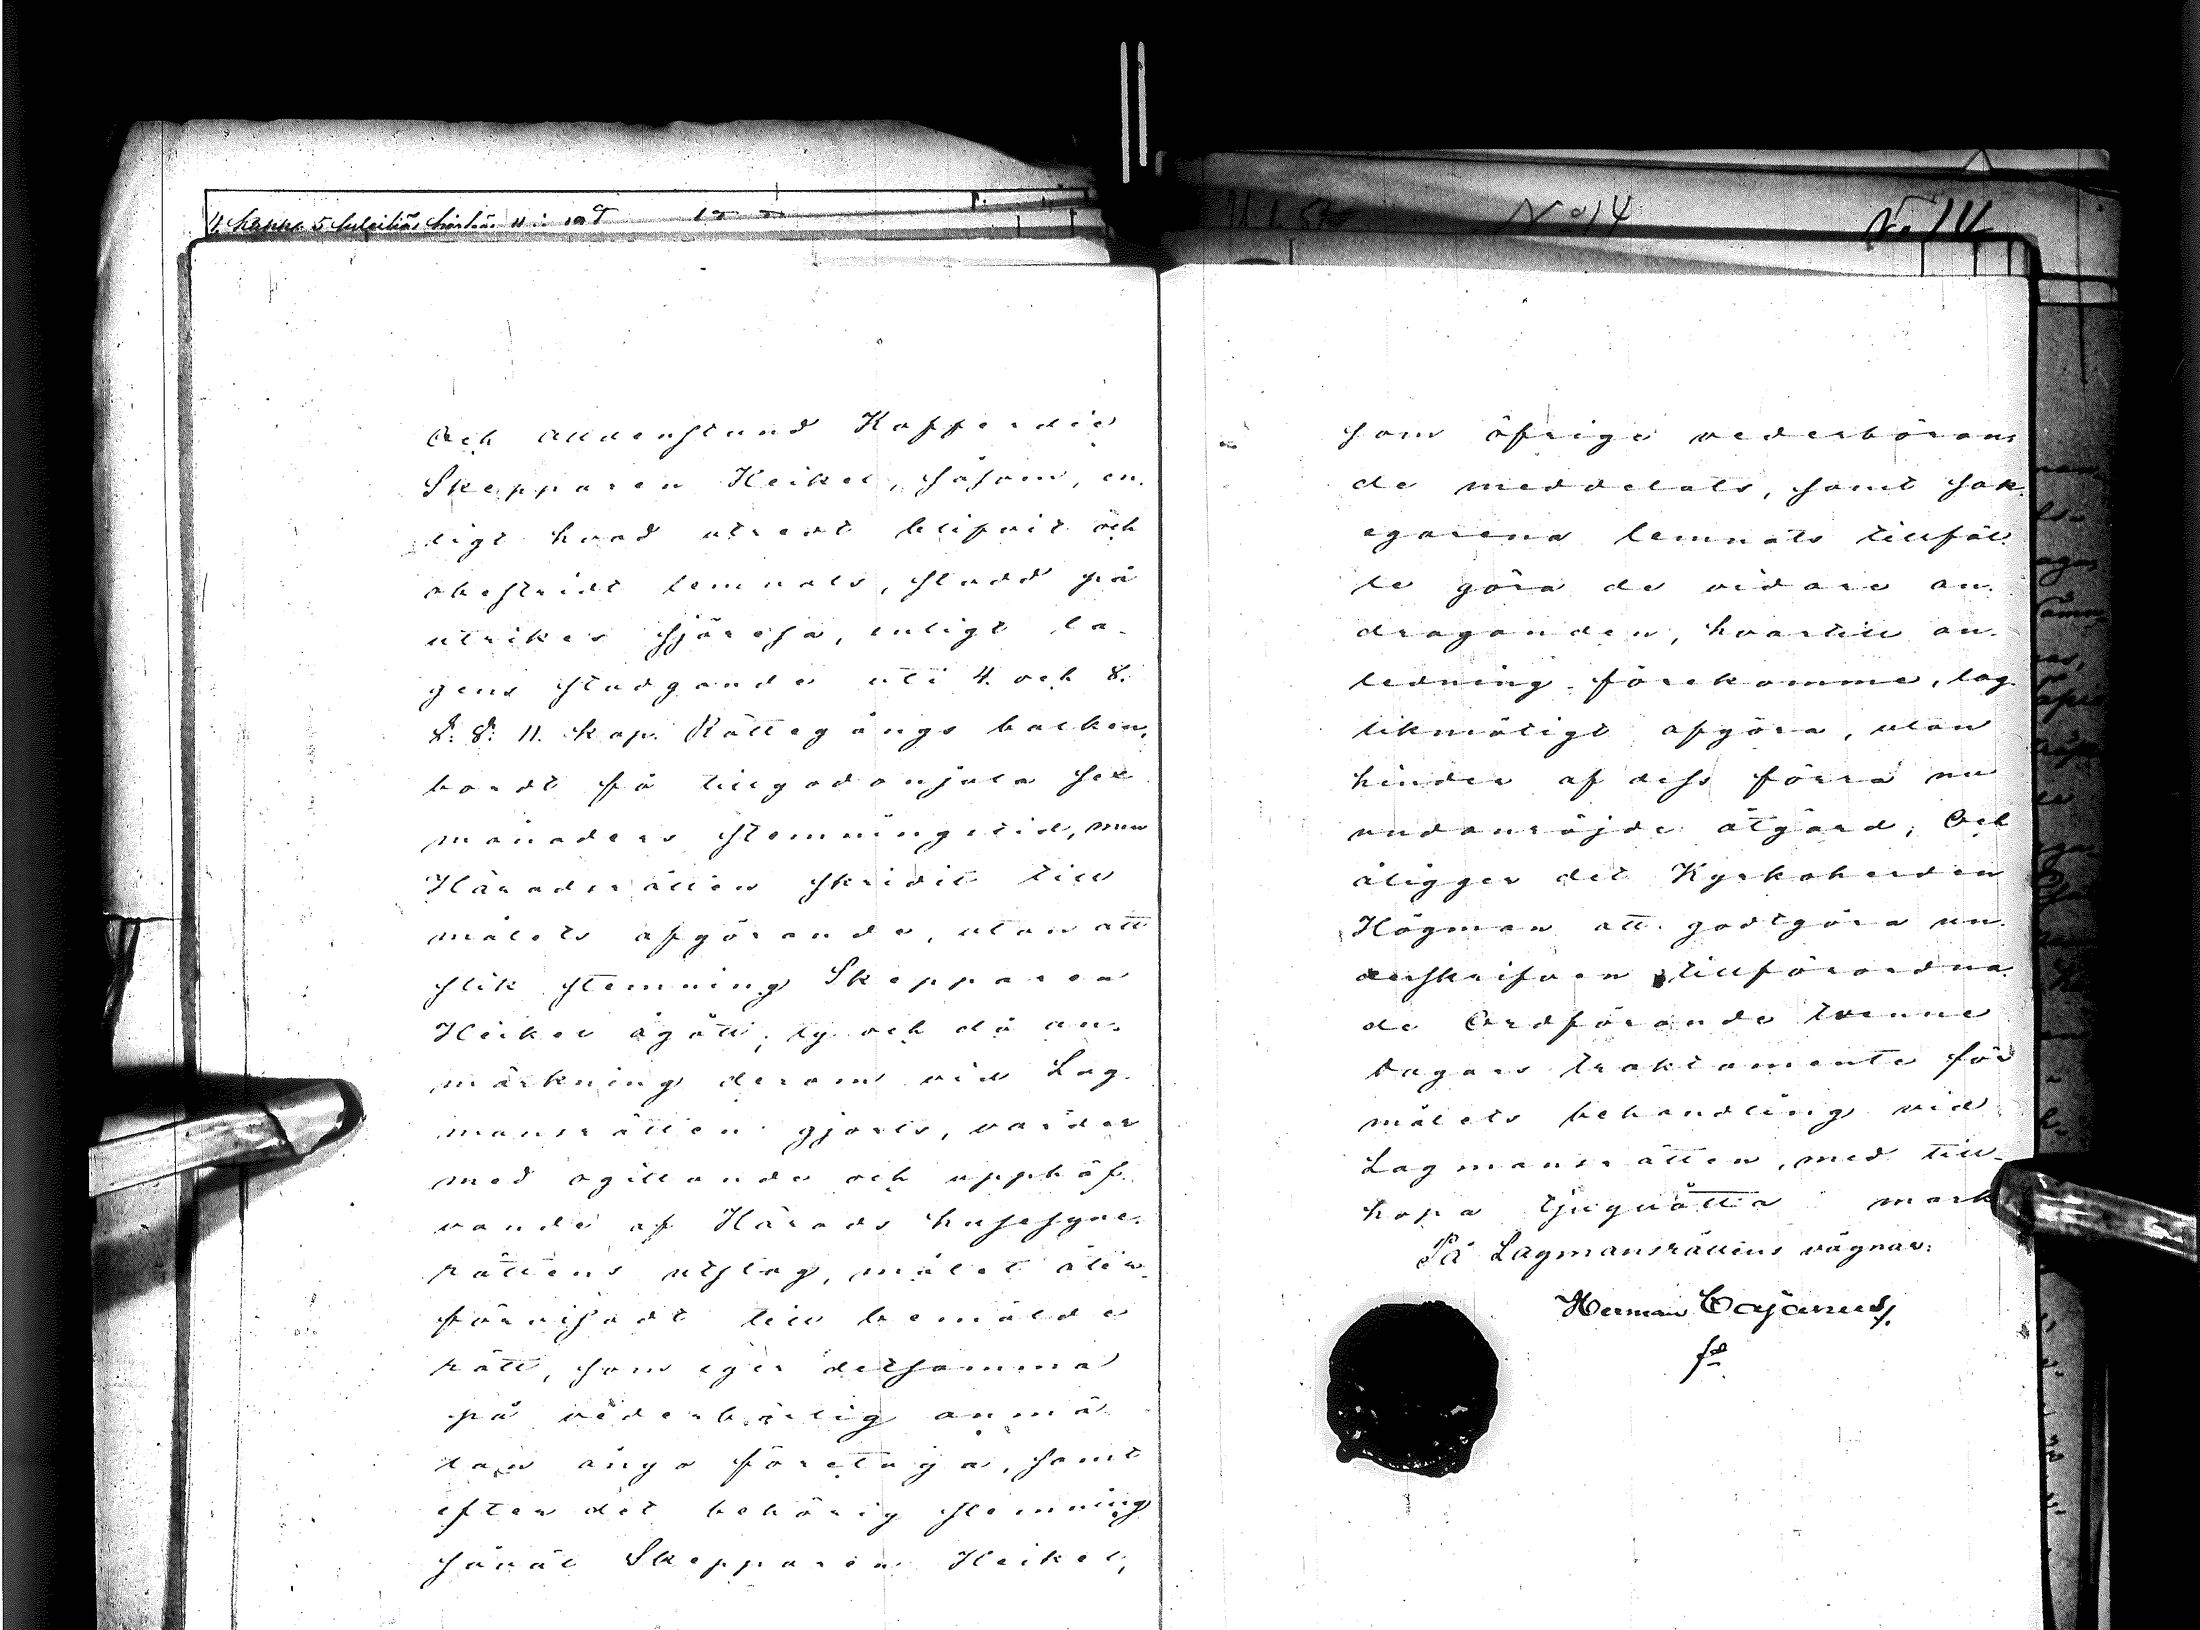 No 14
No 14
Och alldenstund Kofferdie
Skepparen Heikel, såsom, en.
ligt hvad utredt blifvit och
obestridt lemnats, stadd på
utrikes sjöresa, enligt la.
gens stadgande uti 4. och 8.
§. §. 11. Kap. Rättegångs balken,
bordt få tillgodonjuta sex
månaders stemningstid, men
Häradsrätten skridit till
målets afgörande, utan att
slik stemning Skepparen
Heikel ågått; ty och då an.
märkning derom vid Lag.
mansrätten gjorts, varder
med ogillande och upphäf.
vande af Härads husesyne.
rättens utslag, målet åter.
förvisadt till bemälde
rätt, som eger detsamma
på vederbörlig anmä
lan ånyo företaga, samt
efter det behörig stemning
såväl Skepparen Heikel,
som öfrige vederböran.
de meddelats, samt sak.
egarena lemnats tillfäl.
le göra de vidare an.
draganden, hvartill an.
ledning förekomme, lag.
likmätigt afgöra, utan
hinder af dess förra nu
undanröjde åtgärd; Och
åligger det Kyrkoherden
Högman att godtgöra un.
derskrifven tillförordna.
de Ordförande tvenne
dagars traktamente för
målets behandling vid
Lagmansrätten, med till.
hopa tjuguåtta mark
På Lagmansrättens vägnar:
Herman Cajanus,